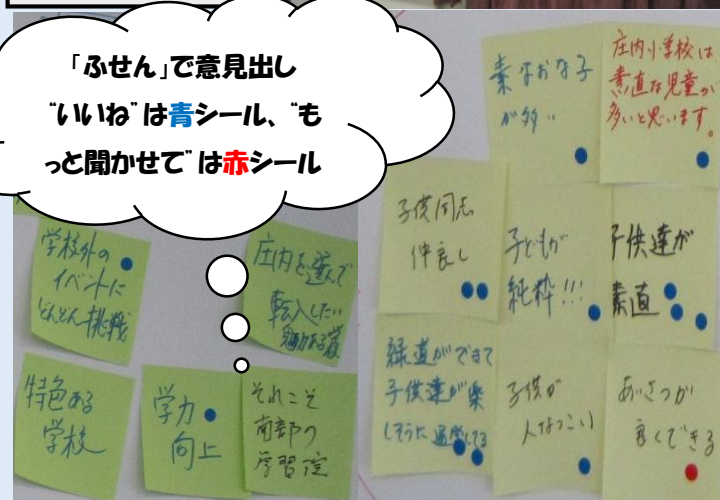 「ふせん」で意見出し
“いいね”は青シール、“も
っと聞かせて”は赤シール
学校外の
イベントに
どんどん挑戦
庄内を選んで
転入したい
特色ある
学校
学力
向上
それこそ
南部の
学習院
素なお子
が多い
庄内小学校は
素直な児童が
多いと思います。
子供同志
仲良し
子どもが
純粋!!!
子供達が
素直
緑道ができて
子供達が楽
しそうに通学してる
子供が
人なつこい
あいさつが
良くできる